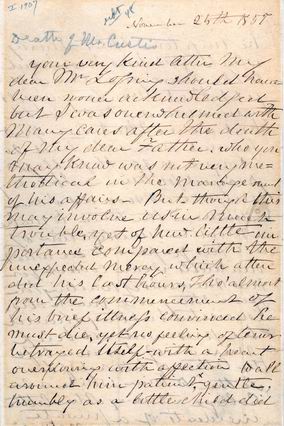 I. 1907
November 25th 1857
Death of Mr. Curtis
Your very kind letter My
dear Mr Lossing should have
been sooner acknowledged
but I was overwhelmed with
Many cares after the death
of My dear Father, who you
may know was not very me-
thodical in the management
of his affairs. But though this
may involve us in much
trouble, yet of how little im
portance compared with the
unexpected Mercy, which atten
ded his last hours, Tho' almost
from the commencement of
his brief illness convinced he
must die, yet no feeling of terror
betrayed itself - with a heart
overflowing with affection to all
around him patient, gentle,
humbly as a little child did